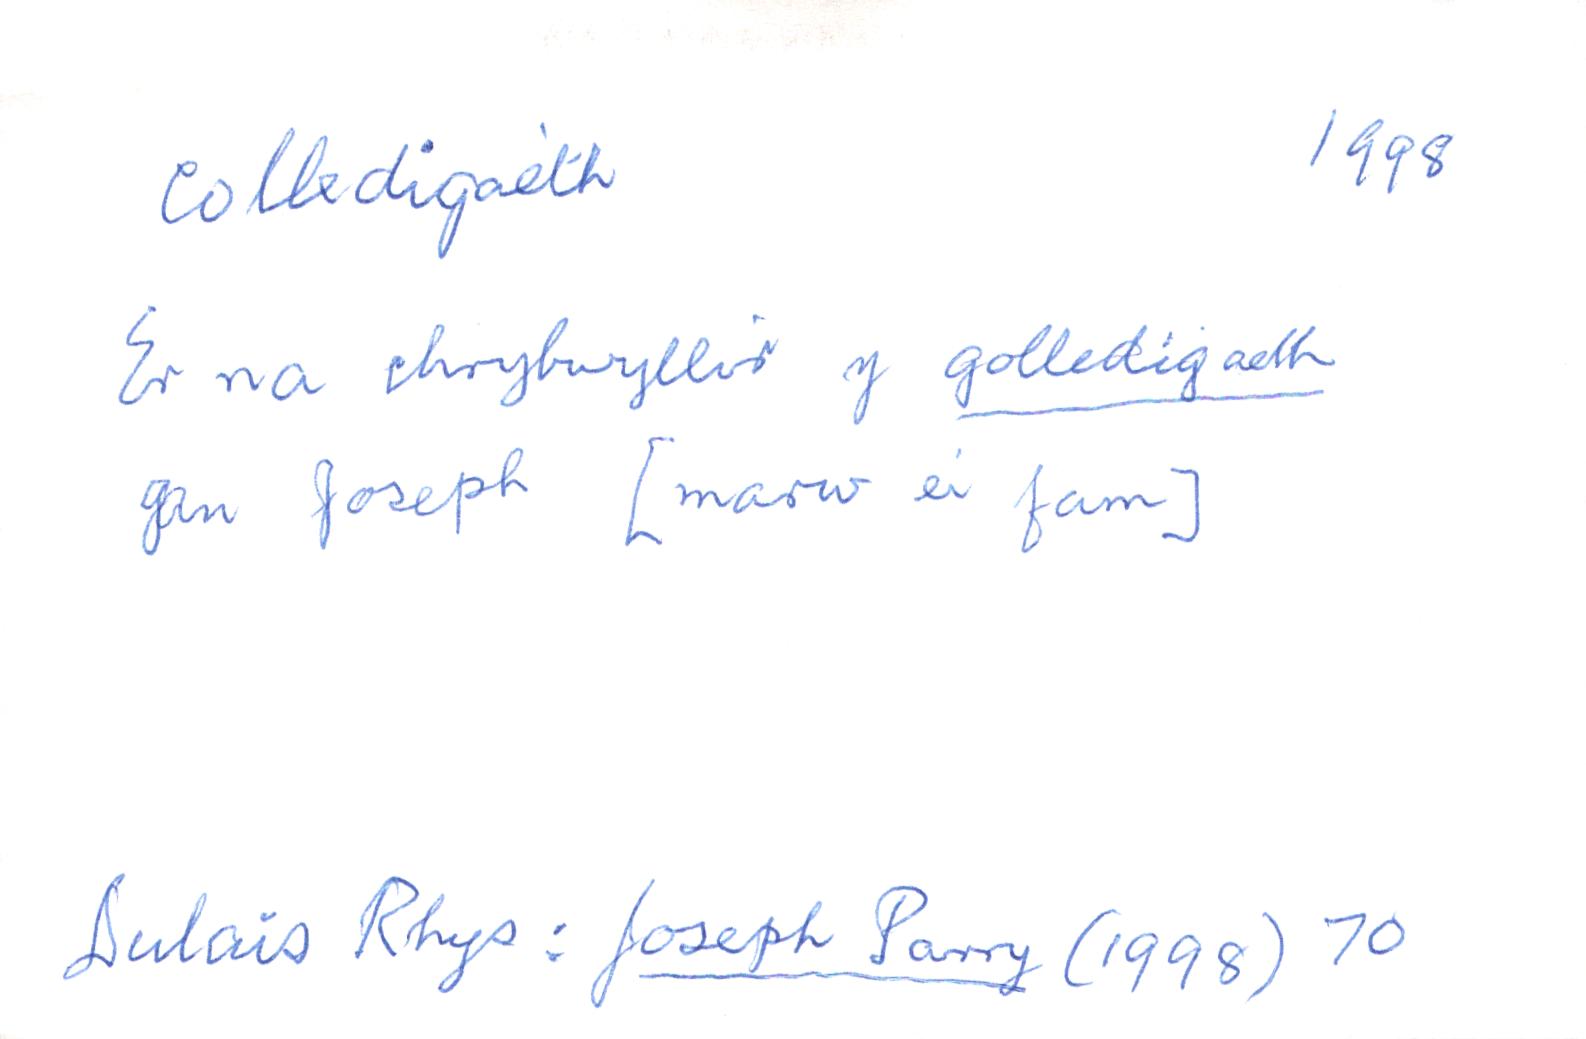 colledigaeth 1998
Er na chrybwyllir y golledigaeth
gan Joseph [marw ei fam]
Dulais Rhys : Joseph Parry (1998) 70